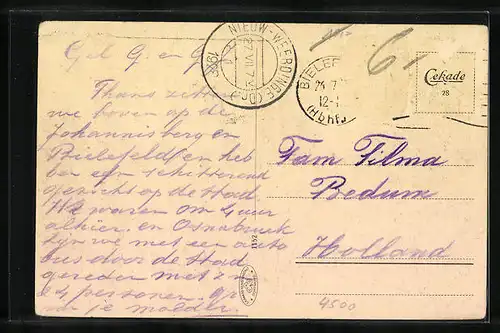 Gel G. en G
Thans zitten
we boven op de
Johannisberg en
Bielefeld en heb
ben een schitterend
gezicht op de stad
We waren om 4 uur
alhier. en Osnabruck
zijn we met een auto
bus door de stad
gereden met z'n
24 personen.
je
NIEUW-WEERDINGE (Dr.)
27 VII 7
1938
BIELEF
24.7
12-1
(Hbhf.
6-
Cekade
78
Fam Tilma
Bedum
Holland
1152
4500